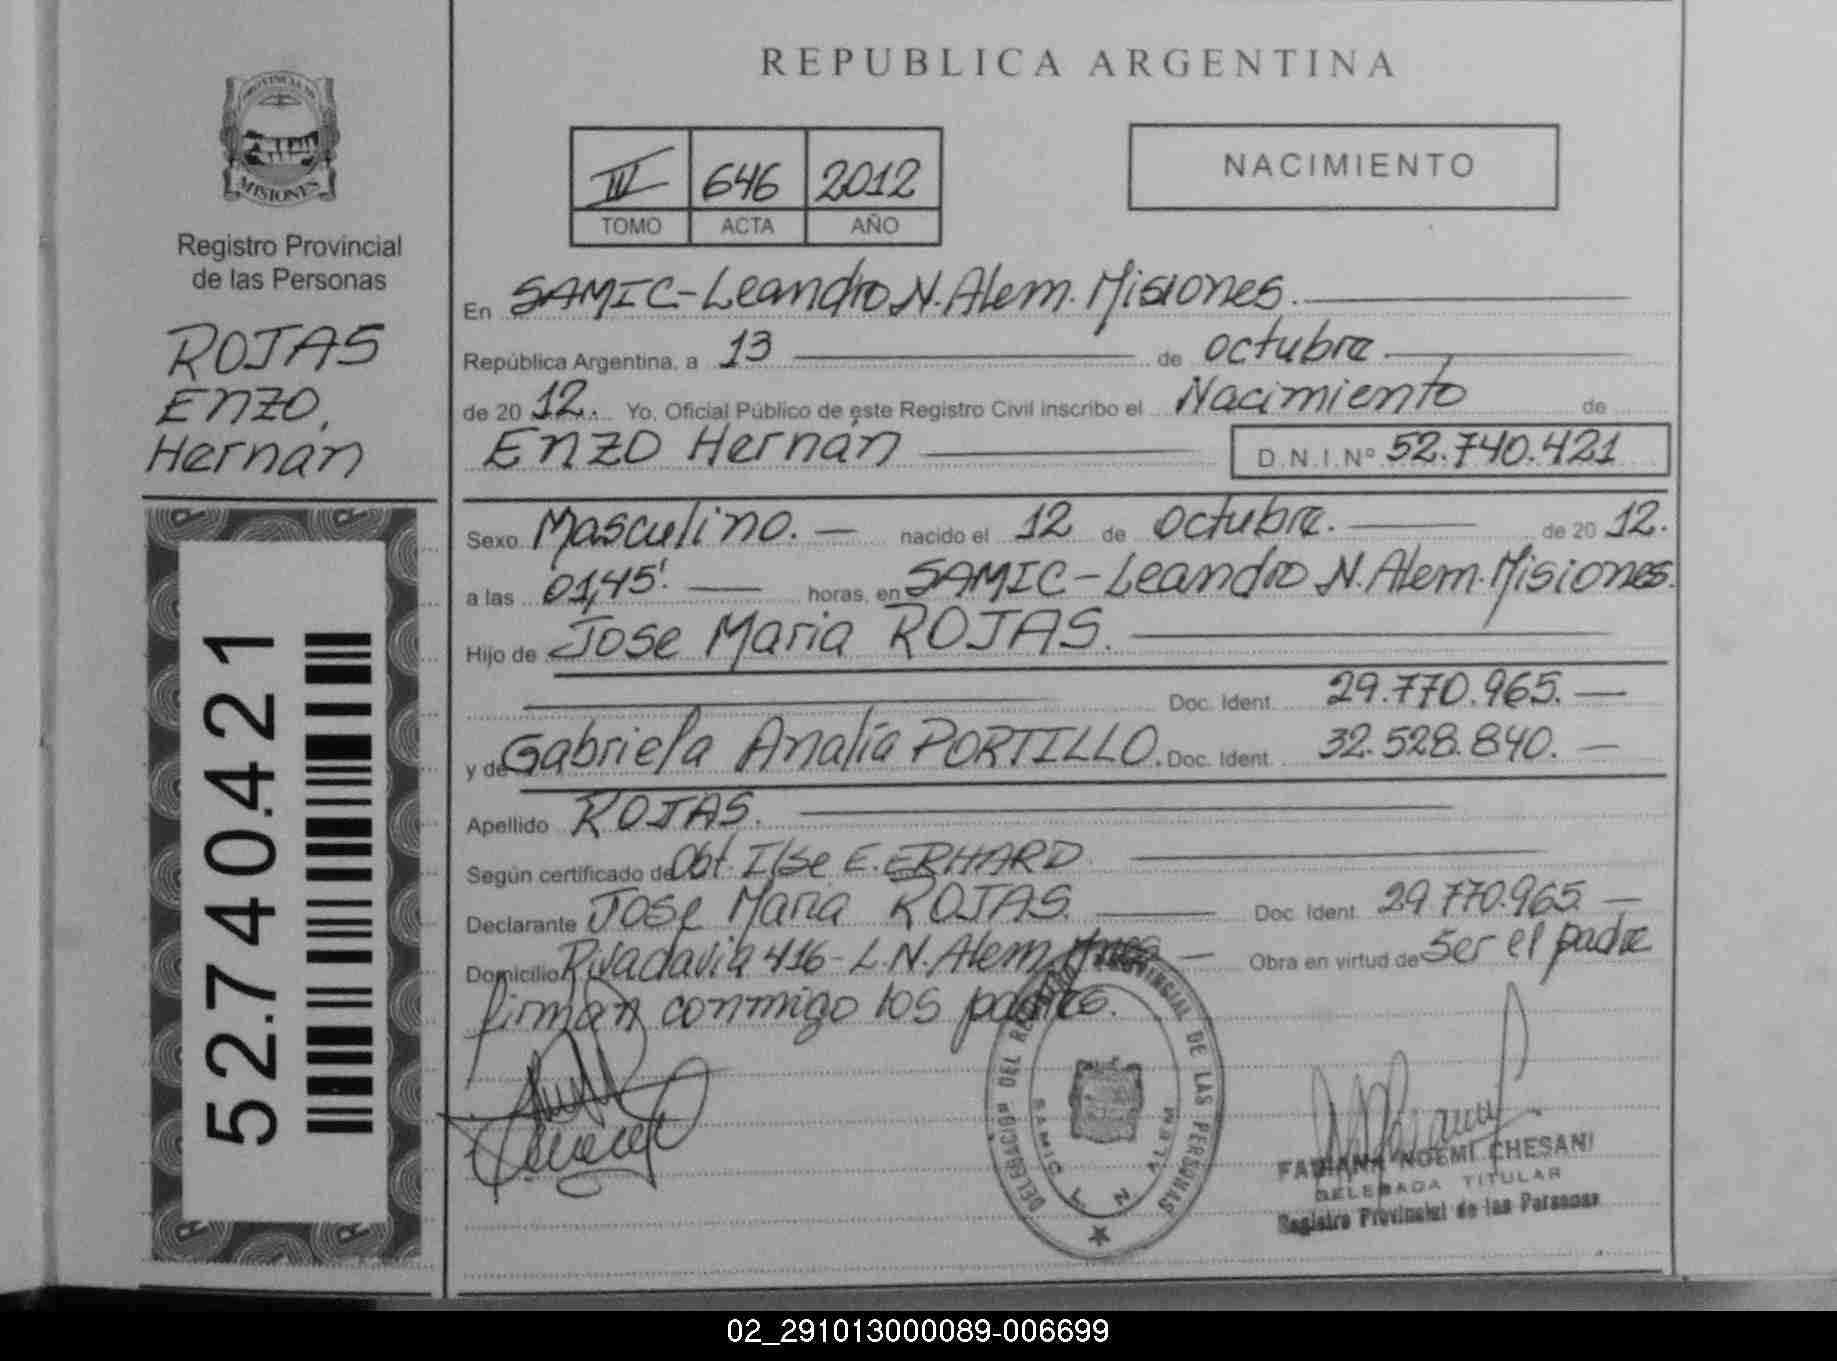 PROVINCIA DE
MISIONES
Registro Provincial
de las Personas
ROJAS
ENZO,
Hernán
52.740.421
REPUBLICA ARGENTINA
III 646 2012
TOMO ACTA AÑO
NACIMIENTO
En SAMIC-Leandro N. Alem. Misiones.
República Argentina, a 13 de octubre
de 20 12. Yo, Oficial Público de este Registro Civil inscribo el Nacimiento de
ENZO Hernán D.N.I.Nº 52.740.421
Sexo Masculino. nacido el 12 de octubre. de 20 12.
a las 01,45'. horas, en SAMIC-Leandro N. Alem. Misiones.
Hijo de Jose Maria ROJAS.
Doc. Ident. 29.770.965.
y de Gabriela Analía PORTILLO. Doc. Ident. 32.528.840.
Apellido ROJAS.
Según certificado de Obt. Ilse E. ERHARD.
Declarante Jose Maria ROJAS. Doc. Ident. 29.770.965.
Domicilio Rivadavia 416 - L.N. Alem Obra en virtud de Ser el padre
firman conmigo los padres.
DELEGACION DEL REGISTRO PROVINCIAL DE LAS PERSONAS
SAMIC L N ALEM
FABIANA NOEMI CHESANI
DELEGADA TITULAR
Registro Provincial de las Personas
02_291013000089-006699